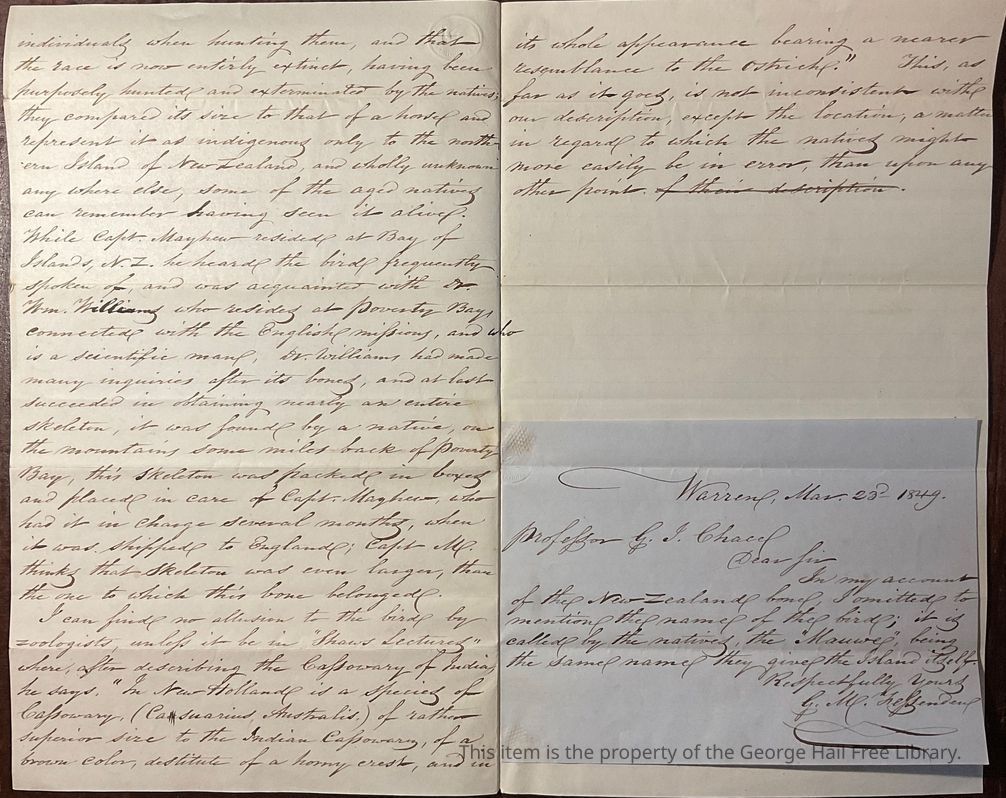 individuals when hunting them, and that
the race is now entirely extinct, having been
purposely hunted and exterminated by the natives;
they compared its size to that of a horse and
represent it as indigenous only to the north-
ern Island of New Zealand and wholly unknown
any where else, some of the aged natives
can remember having seen it alive.
While Capt. Mayhew resided at Bay of
Islands, N.Z. he heard the bird frequently
spoken of, and was acquainted with Dr
Wm. Williams who resided at Poverty Bay,
connected with the English missions, and who
is a scientific man, Dr Williams had made
many inquiries after its bones, and at last
succeeded in obtaining nearly an entire
skeleton, it was found by a native, on
the mountains some miles back of Poverty
Bay, this skeleton was packed in boxes
and placed in care of Capt. Mayhew, who
had it in charge several months, when
it was shipped to England; Capt M.
thinks that skeleton was even larger, than
the one to which this bone belonged.
I can find no allusion to the bird by
zoologists, unless it be in "Shaws Lectures"
where, after describing the Cassowary of India,
he says. "In New Holland is a species of
Cassowary, (Casuarius, Australis.) of rather
superior size to the Indian Cassowary, of a
brown color, destitute of a horny crest, and in
its whole appearance bearing a nearer
resemblance to the Ostrich." This, as
far as it goes, is not inconsistent with
our description, except the location, a matter
in regard to which the natives might
more easily be in error, than upon any
other point of their description.
Warren, Mar. 23d 1849.
Professor G. I. Chace
Dear Sir
In my account
of the New Zealand bone I omitted to
mention the name of the bird; it is
called by the natives, the "Mauwe," being
the same name they give the Island itself.
Respectfully Yours
G. M. Fessenden
This item is the property of the George Hail Free Library.